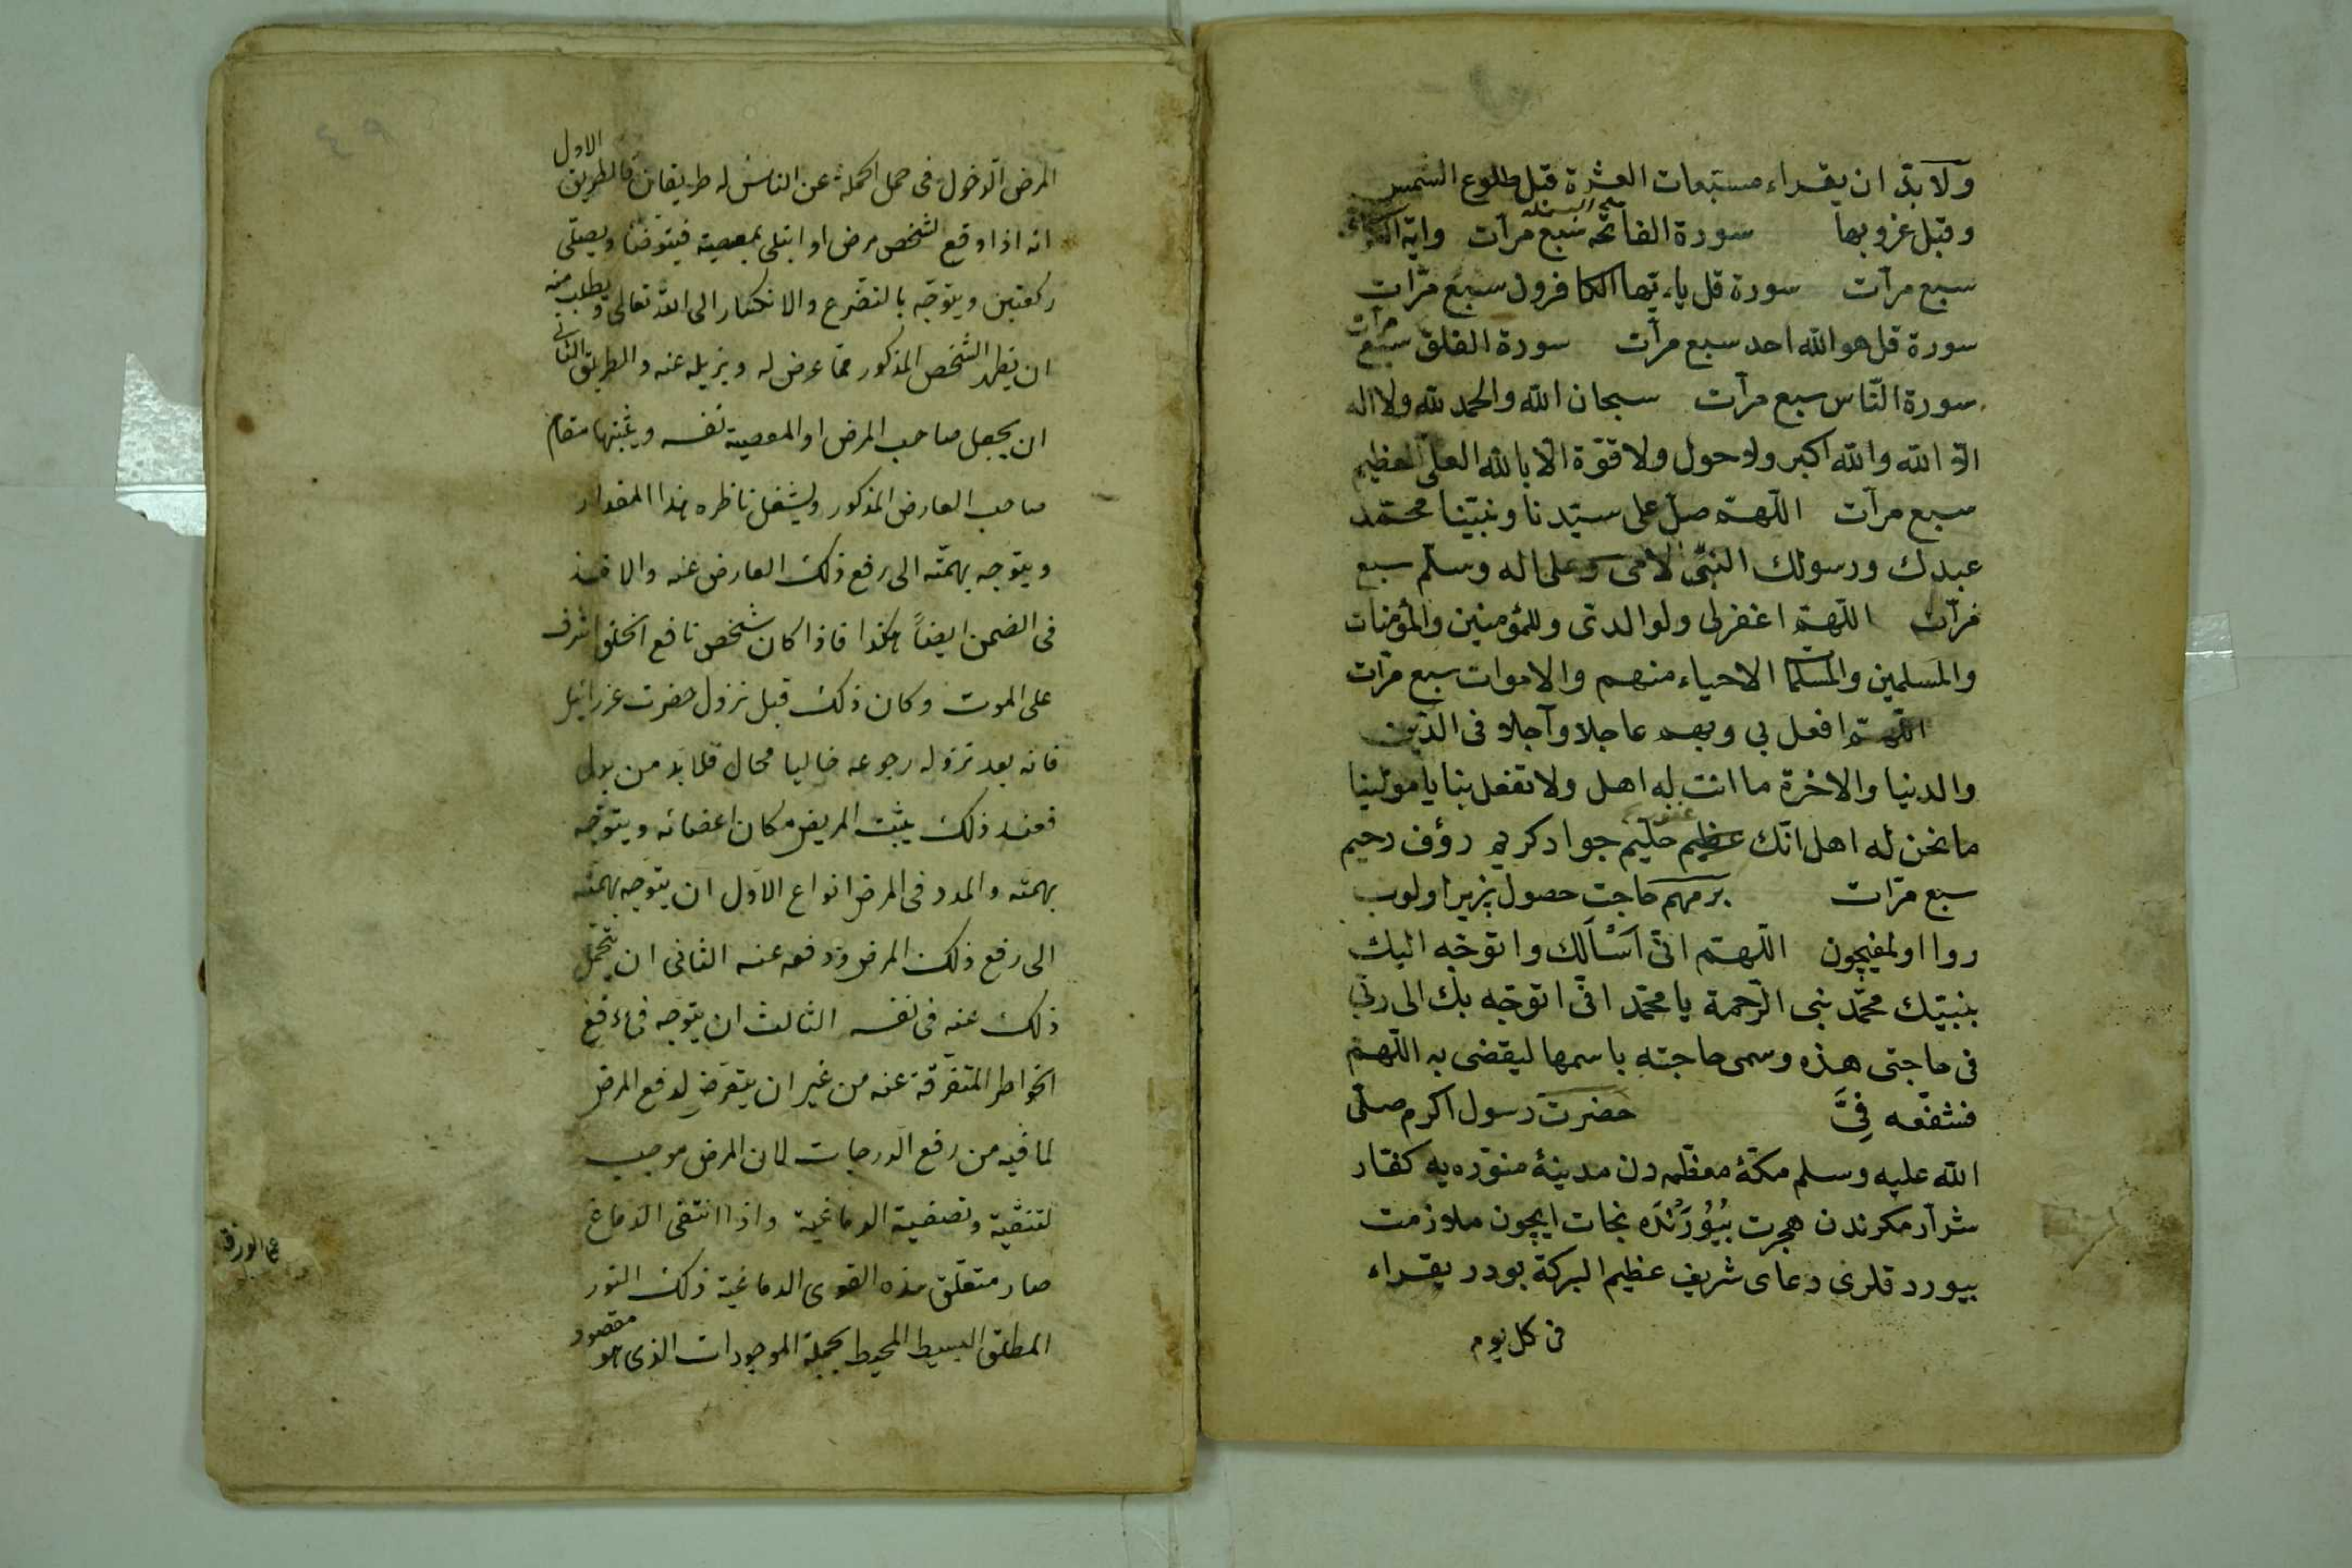 ولا بدّ ان يقراء مستبعات العشرة قبل طلوع الشمس
وقبل غروبها سورة الفاتحه سبع مرآت واية
سبع مرآت سورة قل ياءيّها الكافرون سبع مرّات
سورة قل هو الله احد سبع مرآت سورة الفلق سبع مرآت
سورة النّاس سبع مرآت سبحان الله والحمد لله ولا اله
الّا الله والله اكبر ولا حول ولا قوّة الّا بالله العلى العظيم
سبع مرآت اللّهمّ صلّ على سيّدنا ونبيّنا محمّد
عبدك ورسولك النبىّ الامى وعلى اله وسلّم سبع
مرآت اللّهمّ اغفرلى ولوالدىّ وللمؤمنين والمؤمنات
والمسلمين والمسلمات الاحياء منهم والاموات سبع مرّات
اللّهمّ افعل بى وبهم عاجلا وآجلا فى الدّين
والدنيا والاخرة ما انت له اهل ولا تفعل بنا يا مولينا
ما نحن له اهل انّك غفور حليم جواد كريم رؤف رحيم
سبع مرّات بر مهم حاجت حصول پزير اولوب
روا اولمغيچون اللّهمّ انّى اَسْاَلك واتوجّه اليك
بنبيّك محمّد نبى الرّحمة يا محمّد انّى اتوجّه بك الى ربّى
فى حاجتى هذه وسمى حاجته باسمها ليقضى به اللّهمّ
فشفّعه فِىَّ حضرت رسول اكرم صلّى
الله عليه وسلم مكّۀ معظّمه دن مدينۀ منوّره يه كفّار
شرآر مكرندن هجرت بُيُورُنْدَه نجات ايچون ملازمت
بيوردقلرى دعاى شريف عظيم البركة بودر يقراء
فى كل يوم
المرض الدخول فى حمل الحملة عن الناس له طريقان فالطريق الاول
انه اذا وقع لشخص مرض او ابتلى بمعصية فيتوضأ ويصلّى
ركعتين ويتوجّه بالتضرع والانكسار الى الله تعالى ويطلب منه
ان يطهر الشخص المذكور ممّا عرض له ويزيله عنه والطريق الثانى
ان يجعل صاحب المرض او المعصية نفسه ويثبتها مقام
صاحب العارض المذكور وليشغل ناظره بهذا المقدار
ويتوجه بهمّته الى رفع ذلك العارض عنه والاخذ
فى الضمن ايضاً هكذا فاذا كان شخص نافع الخلق اشرف
على الموت وكان ذلك قبل نزول حضرت عزرائيل
فانه بعد نزوله رجوعه خاليا محال فلا بد من بدل
فعند ذلك يثبت المريض مكان اعضائه ويتوجّه
بهمته والمدد فى المرض انواع الاول ان يتوجّه بهمّته
الى رفع ذلك المرض ودفعه عنه الثانى ان يتحمّل
ذلك عنه فى نفسه الثالث ان يتوجّه فى دفع
الخواطر المتفرّقة عنه من غير ان يتعرّض لدفع المرض
لما فيه من رفع الدرجات لان المرض موجب
لتنقية وتصفية الدماغية واذا انتقى الدماغ
صار متعلّق هذه القوى الدماغية ذلك النور
المطلق البسيط المحيط بجملة الموجودات الذى هو مقصود